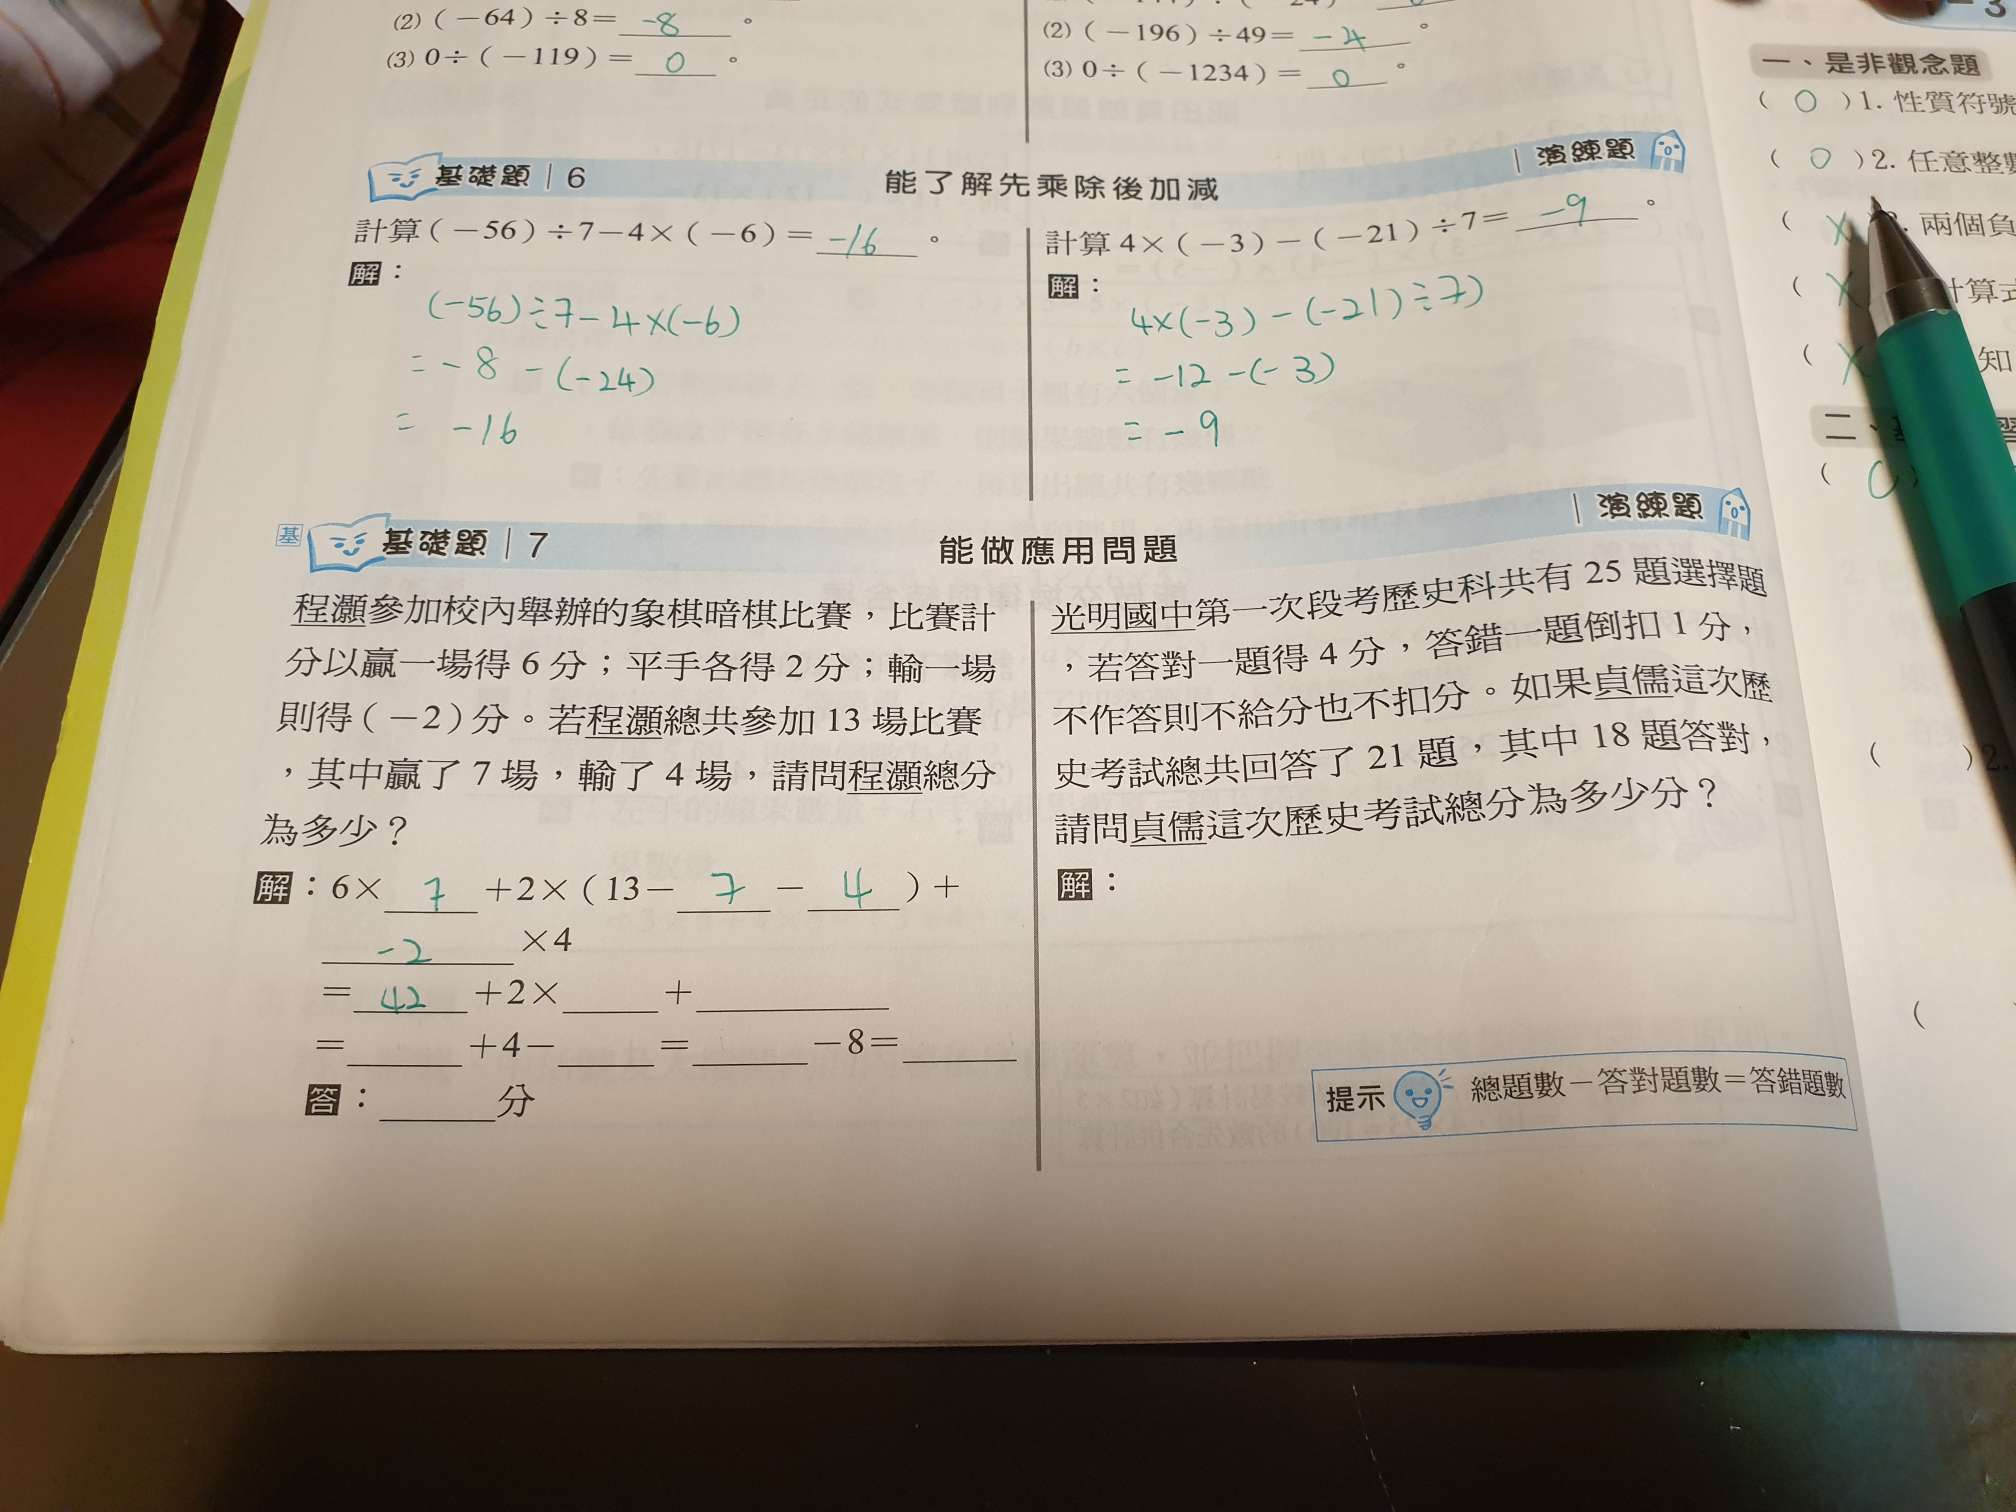 (2) (－64) ÷8＝ -8 。
(3) 0÷(－119)＝ 0 。
(2) (－196) ÷49＝ -4 。
(3) 0÷(－1234)＝ 0 。
基礎題 | 6 能了解先乘除後加減 | 演練題
計算(－56)÷7－4×(－6)＝ -16 。
解：
(-56)÷7-4×(-6)
= -8 -(-24)
= -16
計算 4×(－3)－(－21)÷7＝ -9 。
解：
4×(-3) - (-21)÷7)
= -12 -(-3)
= -9
基 基礎題 | 7 能做應用問題 | 演練題
程灝參加校內舉辦的象棋暗棋比賽，比賽計
分以贏一場得 6 分；平手各得 2 分；輸一場
則得(－2)分。若程灝總共參加 13 場比賽
，其中贏了 7 場，輸了 4 場，請問程灝總分
為多少？
解：6× 7 +2×(13－ 7 － 4 )+
-2 ×4
＝ 42 +2×____+____
＝____+4－____＝____－8＝____
答：____分
光明國中第一次段考歷史科共有 25 題選擇題
，若答對一題得 4 分，答錯一題倒扣 1 分，
不作答則不給分也不扣分。如果貞儒這次歷
史考試總共回答了 21 題，其中 18 題答對，
請問貞儒這次歷史考試總分為多少分？
解：
提示 總題數－答對題數＝答錯題數
－3
一、是非觀念題
( O )1. 性質符號
( O )2. 任意整數
( X . 兩個負
( X 計算式
( X 知
二、
( )2.
(